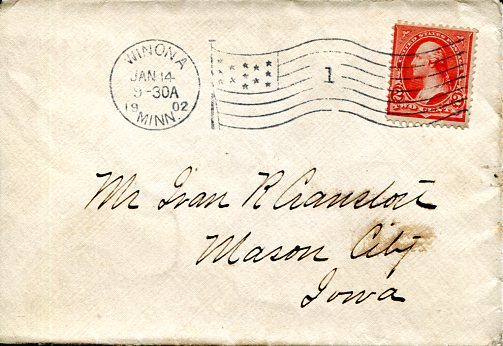 WINONA
JAN 14
9-30A
1902
MINN.
1
UNITED STATES
TWO CENTS
Mr Ivan R Cranston
Mason City
Iowa